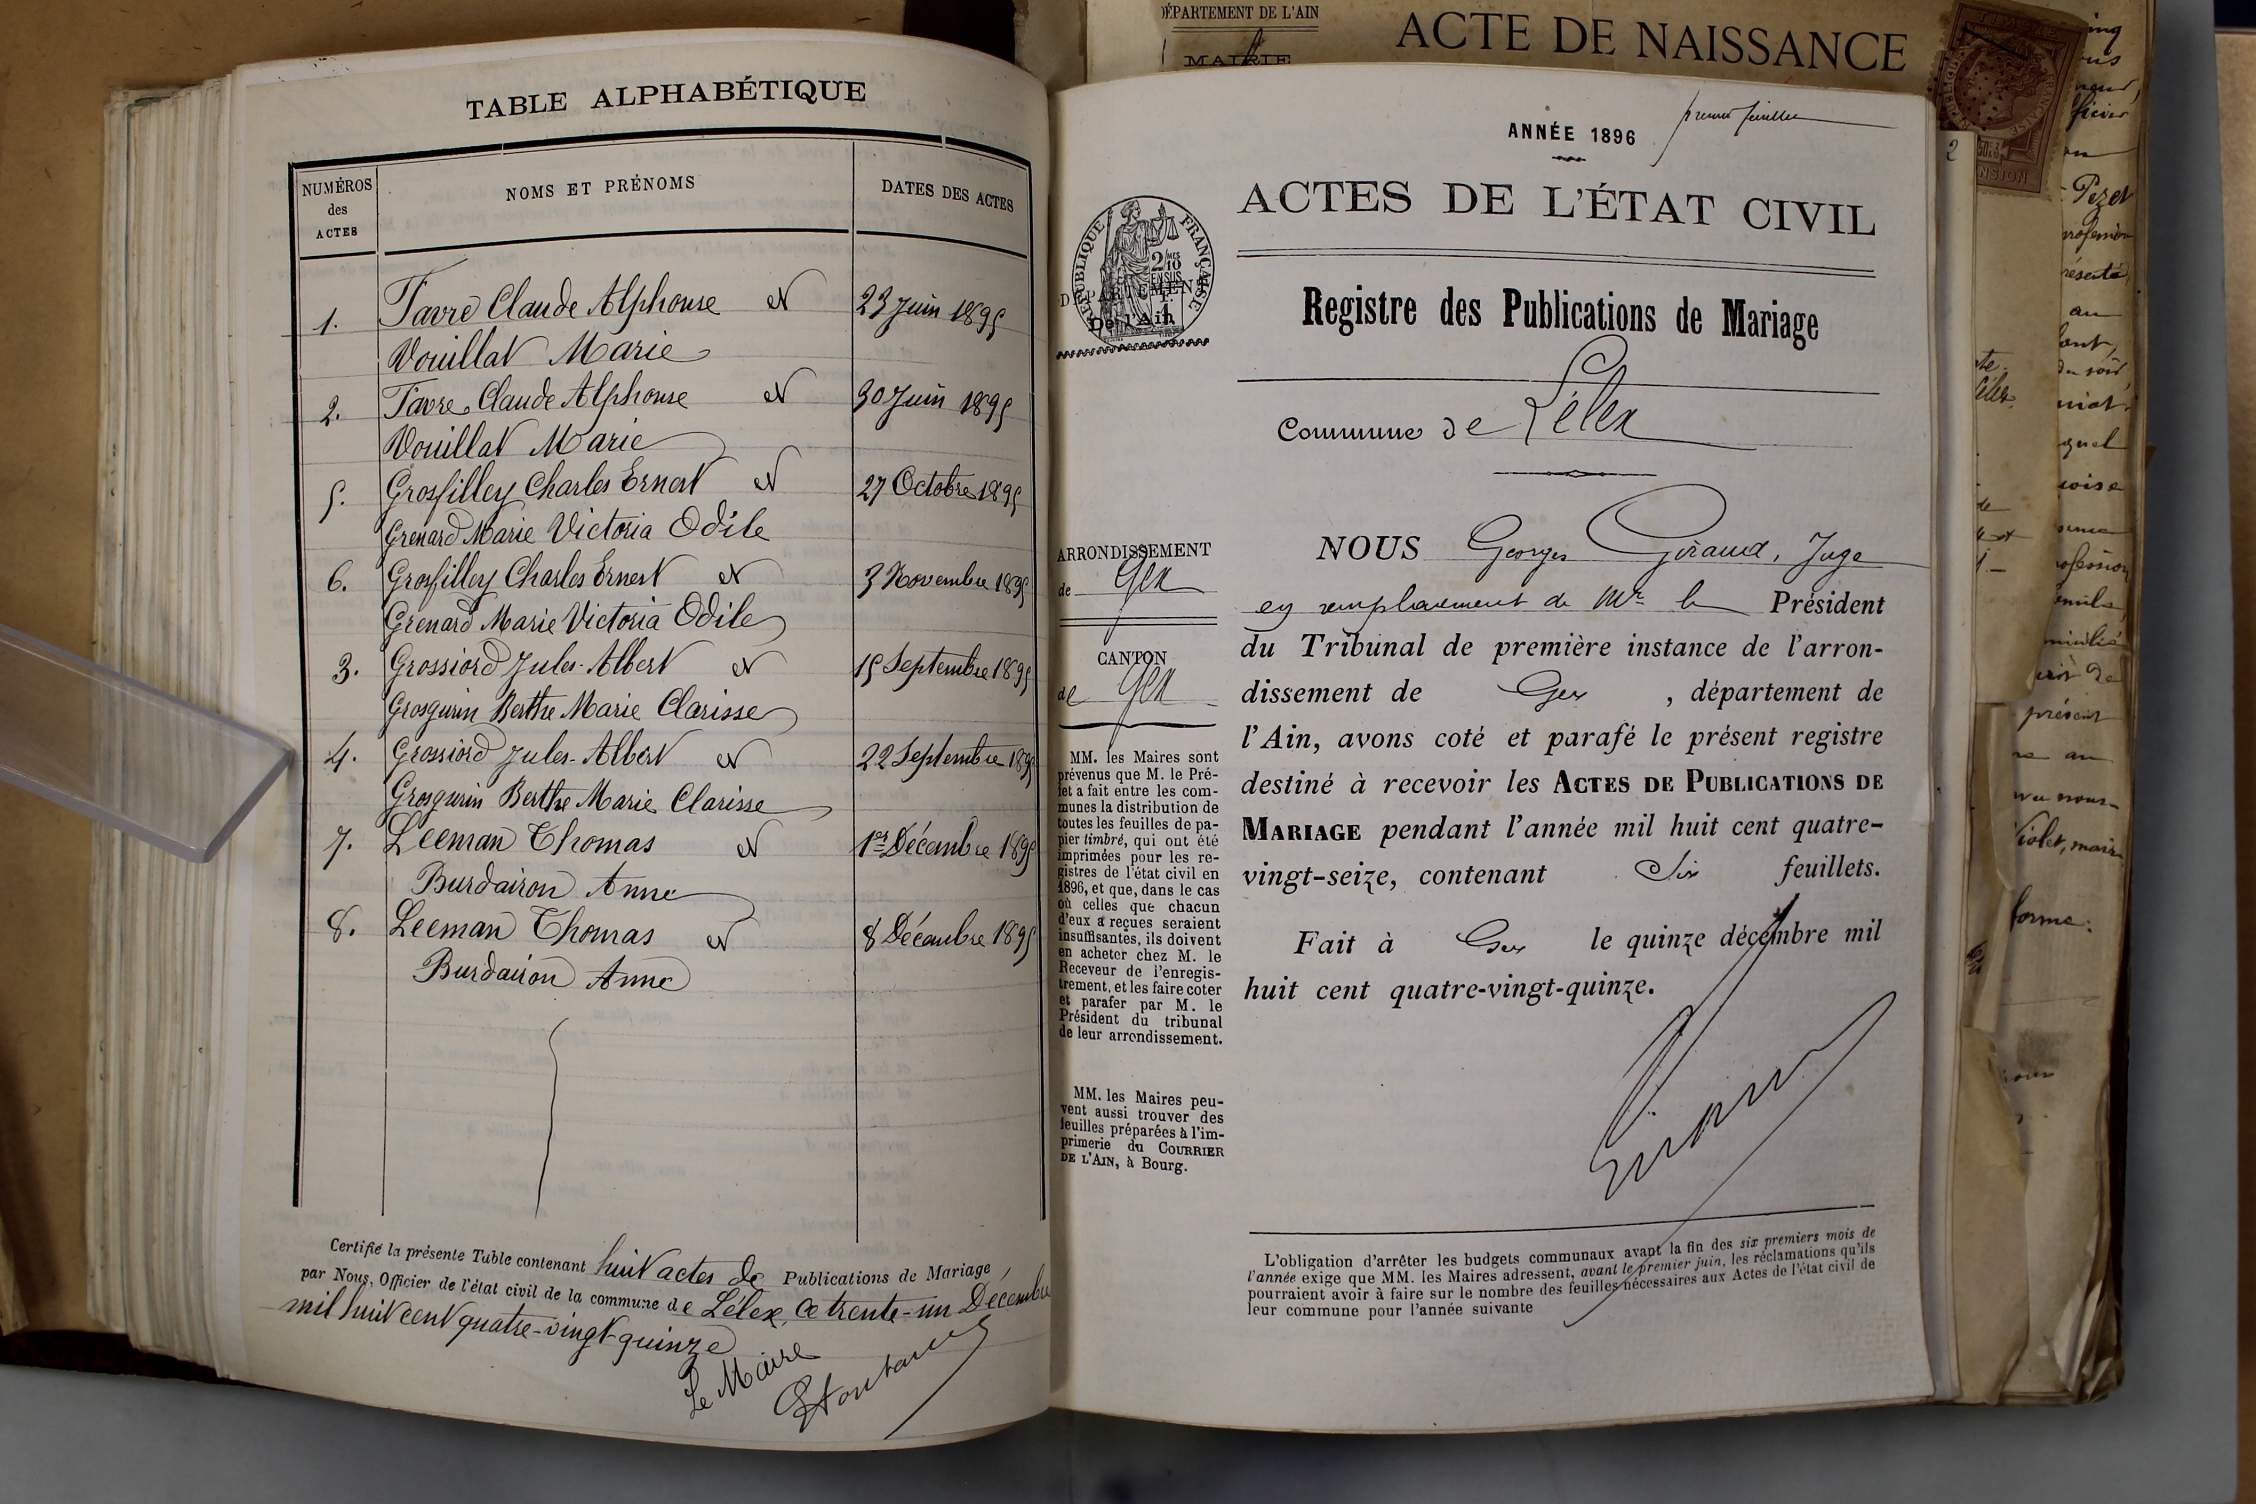 TABLE ALPHABÉTIQUE
NUMÉROS des ACTES
NOMS ET PRÉNOMS
DATES DES ACTES
1. Favre Claude Alphonse et 23 Juin 1895
Vouillat Marie
2. Favre Claude Alphonse et 30 Juin 1895
Vouillat Marie
5. Grosfilley Charles Ernest et 27 Octobre 1895
Grenard Marie Victoria Odile
6. Grosfilley Charles Ernest et 3 Novembre 1895
Grenard Marie Victoria Odile
3. Grossiord Jules-Albert et 15 Septembre 1895
Grosgurin Berthe Marie Clarisse
4. Grossiord Jules-Albert et 22 Septembre 1895
Grosgurin Berthe Marie Clarisse
7. Leeman Thomas et 1er Décembre 1895
Burdairon Anne
8. Leeman Thomas et 8 Décembre 1895
Burdairon Anne
Certifié la présente Table contenant huit actes de Publications de Mariage
par Nous, Officier de l'état civil de la commune de Lélex, ce trente-un Décembre
mil huit cent quatre-vingt-quinze
Le Maire
DÉPARTEMENT DE L'AIN
MAIRIE
ACTE DE NAISSANCE
ANNÉE 1896
premier feuillet
ACTES DE L'ÉTAT CIVIL
RÉPUBLIQUE FRANÇAISE
2/10 EN SUS
DÉPARTEMENT
De l'Ain
Registre des Publications de Mariage
Commune de Lélex
ARRONDISSEMENT
de Gex
CANTON
de Gex
MM. les Maires sont
prévenus que M. le Pré-
fet a fait entre les com-
munes la distribution de
toutes les feuilles de pa-
pier timbré, qui ont été
imprimées pour les re-
gistres de l'état civil en
1896, et que, dans le cas
où celles que chacun
d'eux a reçues seraient
insuffisantes, ils doivent
en acheter chez M. le
Receveur de l'enregis-
trement, et les faire coter
et parafer par M. le
Président du tribunal
de leur arrondissement.
MM. les Maires peu-
vent aussi trouver des
feuilles préparées à l'im-
primerie du COURRIER
DE L'AIN, à Bourg.
NOUS Georges Giraud, Juge
en remplacement de Mr le Président
du Tribunal de première instance de l'arron-
dissement de Gex, département de
l'Ain, avons coté et parafé le présent registre
destiné à recevoir les ACTES DE PUBLICATIONS DE
MARIAGE pendant l'année mil huit cent quatre-
vingt-seize, contenant Six feuillets.
Fait à Gex le quinze décembre mil
huit cent quatre-vingt-quinze.
Giraud
L'obligation d'arrêter les budgets communaux avant la fin des six premiers mois de
l'année exige que MM. les Maires adressent, avant le premier juin, les réclamations qu'ils
pourraient avoir à faire sur le nombre des feuilles nécessaires aux Actes de l'état civil de
leur commune pour l'année suivante
2
Pezet
présent
forme.